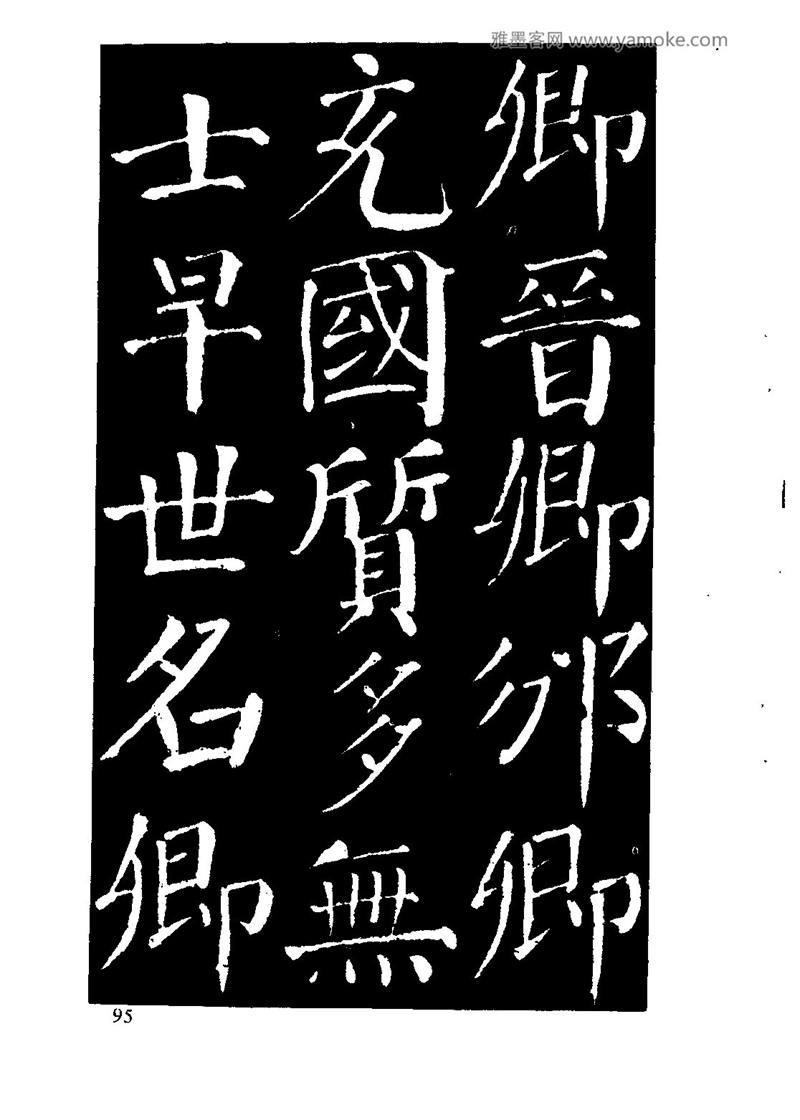 雅墨客网 www.yamoke.com
卿晉卿邠卿
充國質多無
士早世名卿
95